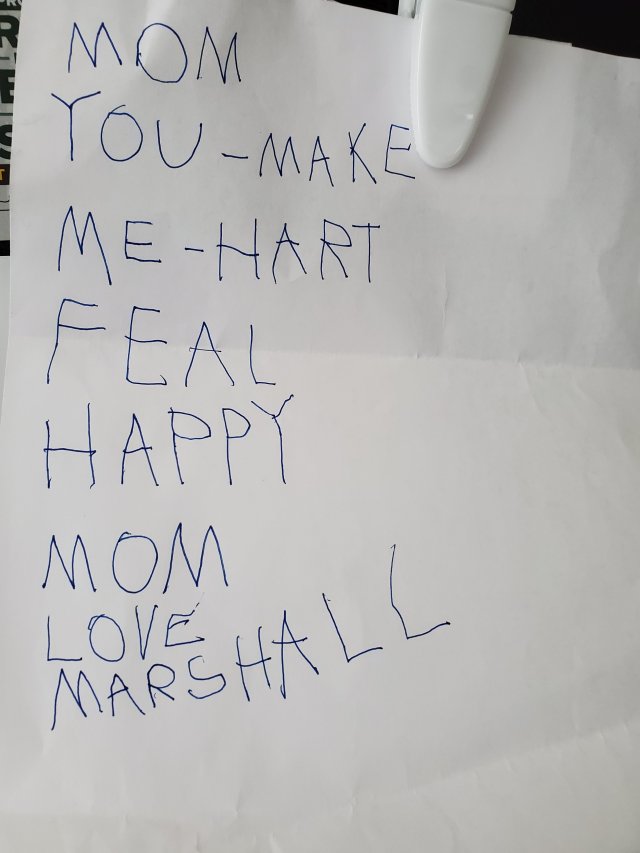 MOM
YOU-MAKE
ME-HART
FEAL
HAPPY
MOM
LOVE
MARSHALL